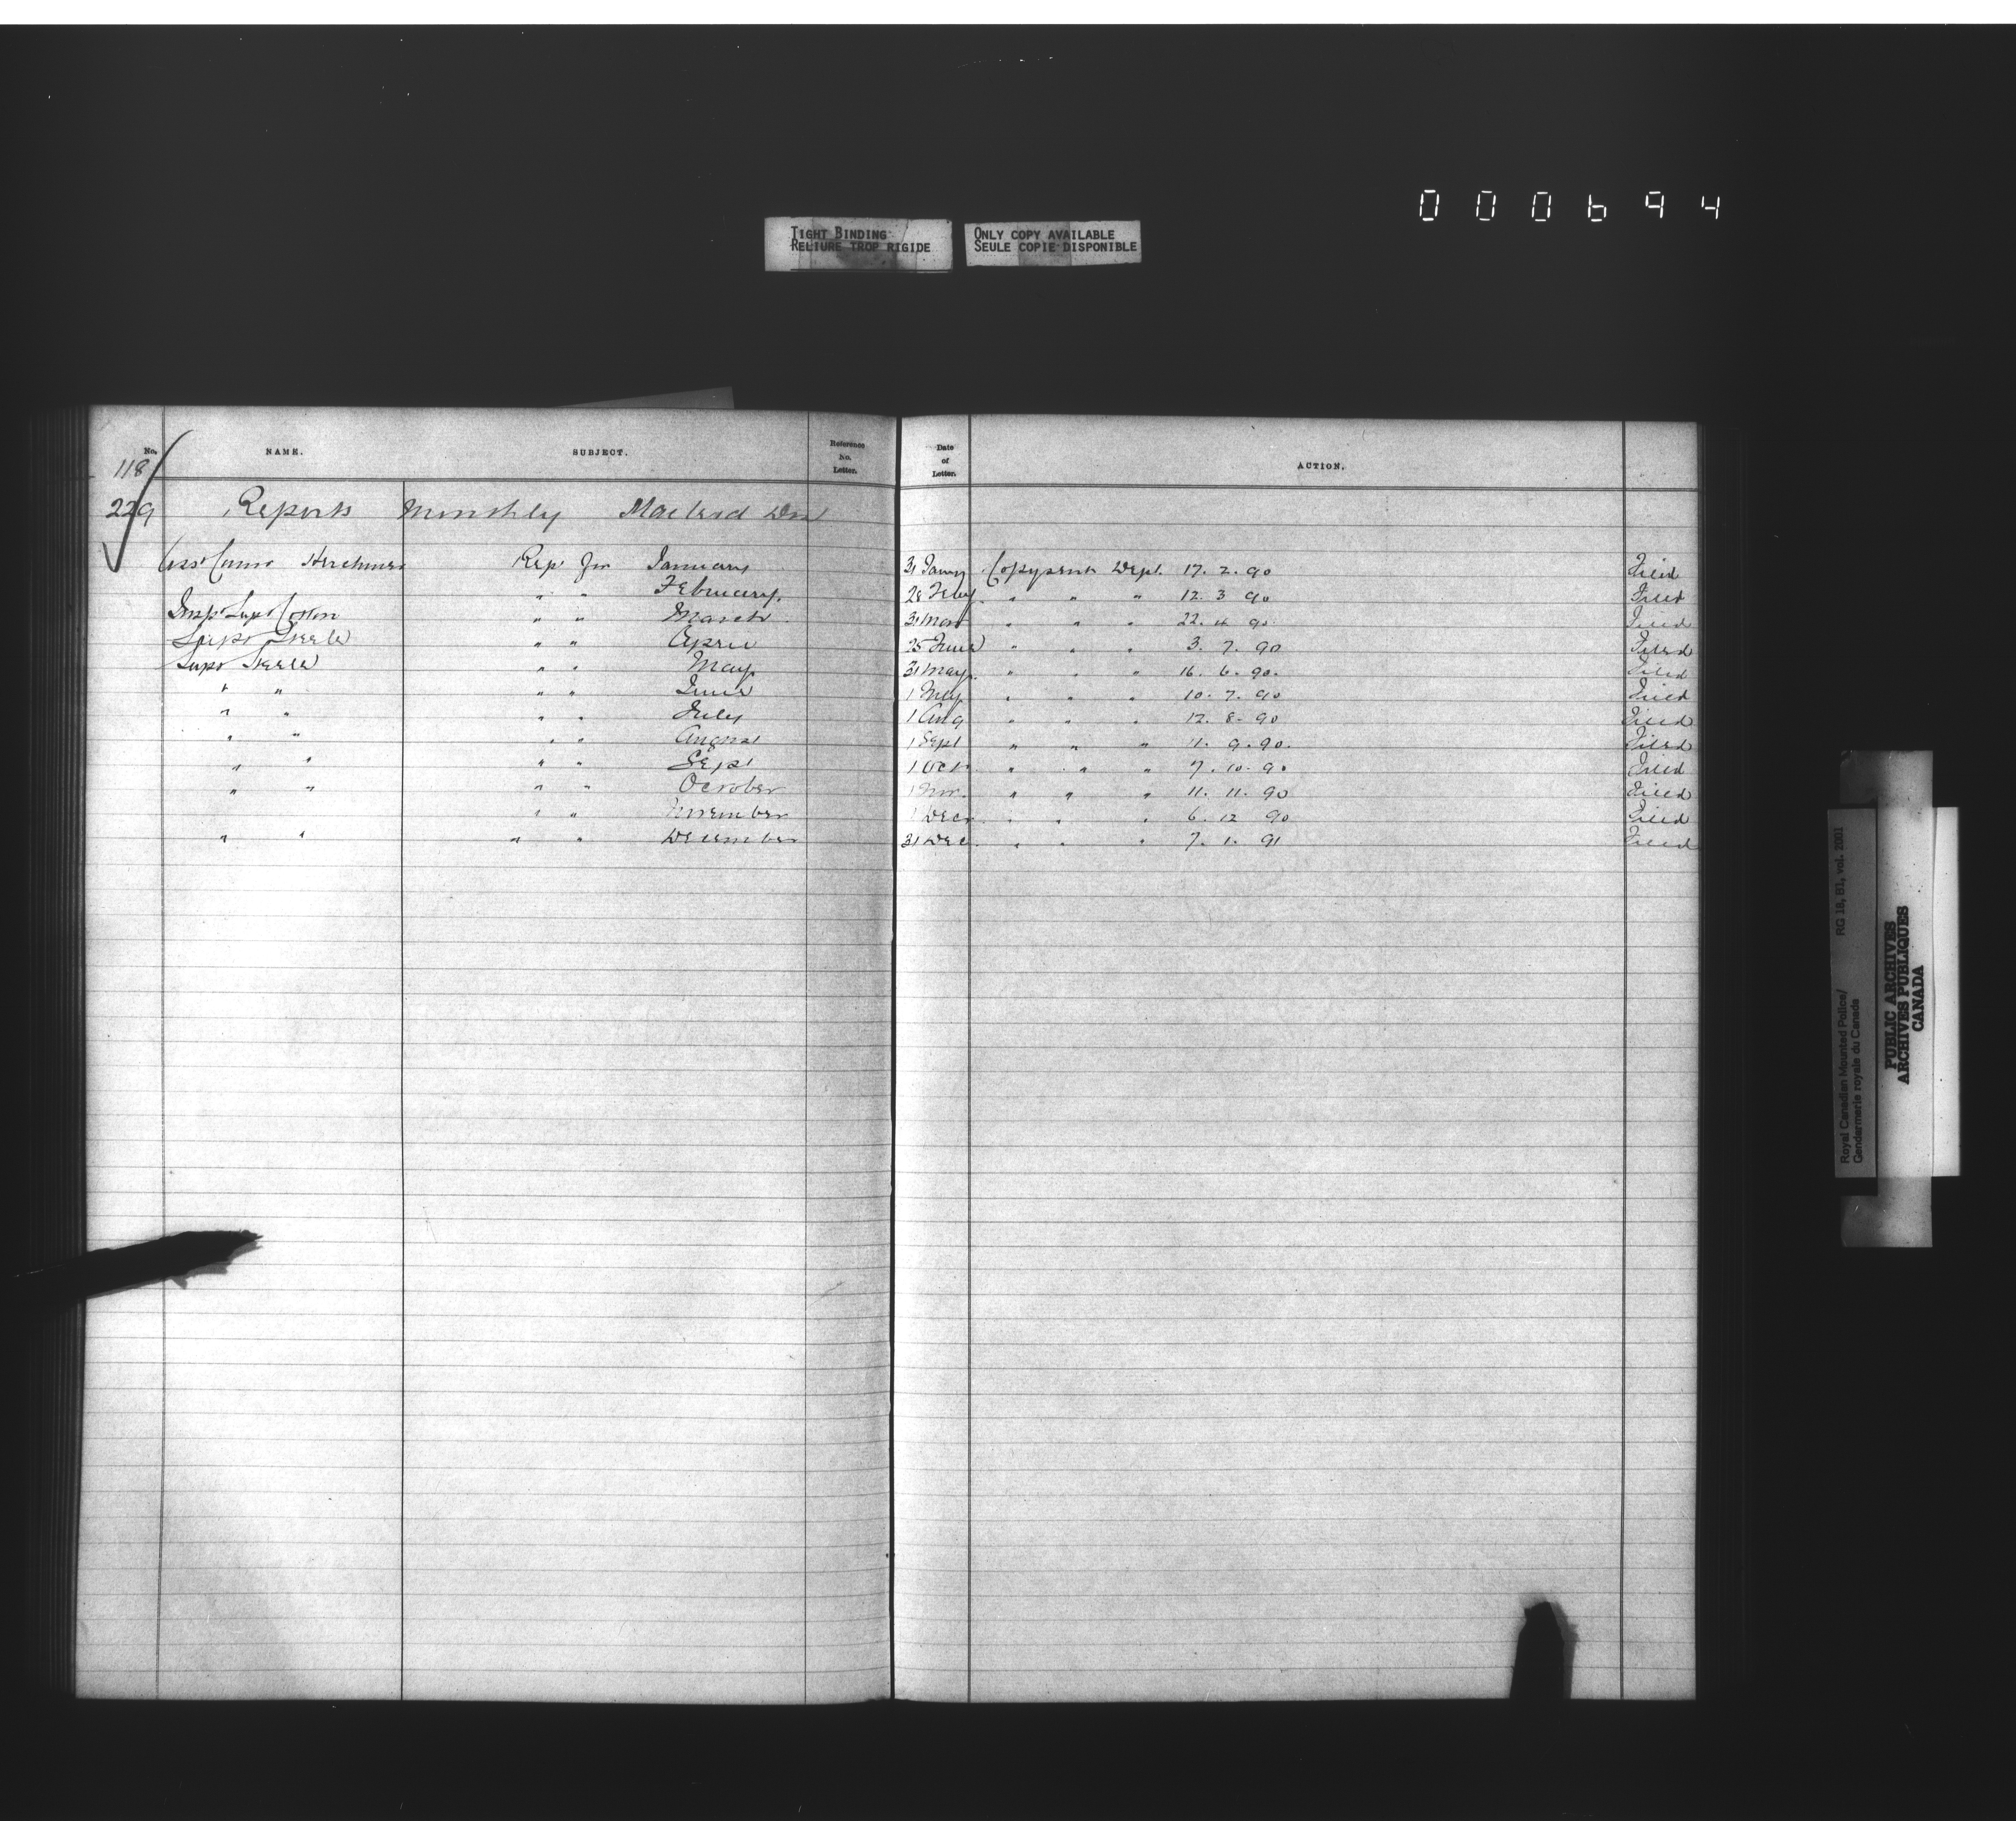 000694
TIGHT BINDING
RELIURE TROP RIGIDE
ONLY COPY AVAILABLE
SEULE COPIE DISPONIBLE
No. NAME. SUBJECT. Reference No. Letter. Date of Letter. ACTION.
118
229 Reports Monthly Macleod
Asst Commr Herchmer Rep for January 31 Jany Copy sent Dept. 17. 2. 90 Filed
" " February. 28 Feby. " " " 12. 3 90 Filed
Supt Cotton " " March 31 Mar " " " 22. 4 90 Filed
Supt Steele " " April 25 June " " " 3. 7. 90 Filed
Supt Steele " " May 31 May. " " " 16. 6. 90. Filed
" " " " June 1 July " " " 10. 7. 90 Filed
" " " " July 1 Aug " " " 12. 8. 90 Filed
" " " " August 1 Sept " " " 11. 9. 90. Filed
" " " " Sept 1 Oct. " " " 7. 10. 90 Filed
" " " " October 1 Nov. " " " 11. 11. 90 Filed
" " November 1 Decr. " " " 6. 12 90 Filed
" " " " December 31 Dec. " " " 7. 1. 91 Filed
Royal Canadian Mounted Police/ RG 18, B1, vol. 2001
Gendarmerie royale du Canada
PUBLIC ARCHIVES
ARCHIVES PUBLIQUES
CANADA